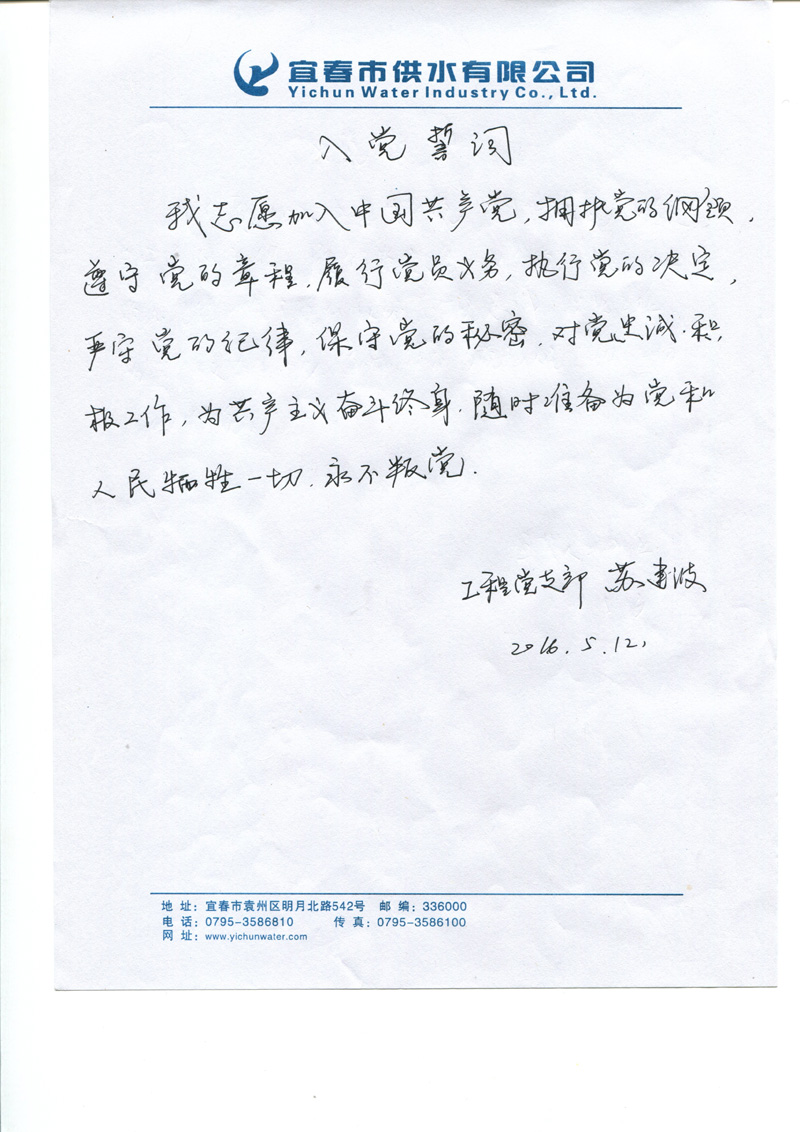 宜春市供水有限公司
Yichun Water Industry Co., Ltd.
入党誓词
我志愿加入中国共产党,拥护党的纲领,
遵守党的章程,履行党员义务,执行党的决定,
严守党的纪律,保守党的秘密,对党忠诚,积
极工作,为共产主义奋斗终身,随时准备为党和
人民牺牲一切,永不叛党.
工程党支部 苏建波
2016.5.12.
地 址: 宜春市袁州区明月北路542号 邮 编: 336000
电 话: 0795-3586810 传 真: 0795-3586100
网 址: www.yichunwater.com